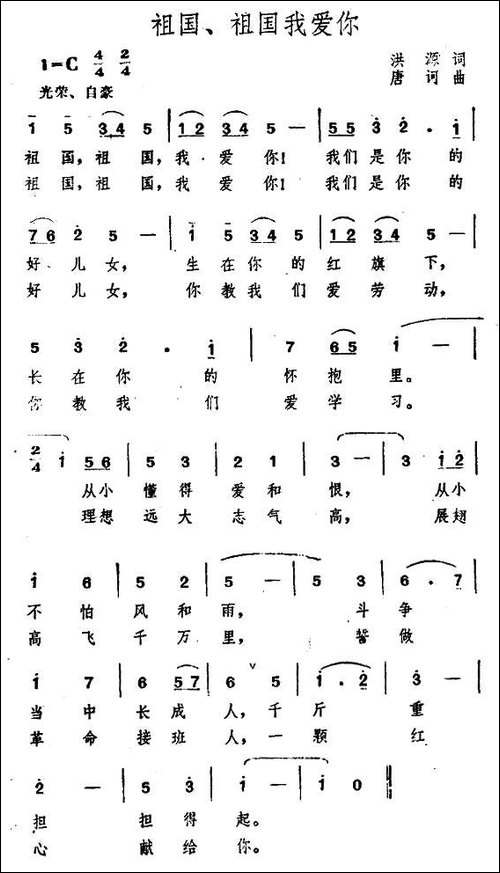 祖国、祖国我爱你
1=C 4/4 2/4
洪源词
唐诃曲
光荣、自豪
1 5 3 4 5 | 1 2 3 4 5 — | 5 5 3 2 . 1 |
祖国,祖国,我爱你!我们是你的
祖国,祖国,我爱你!我们是你的
7 6 2 5 — | 1 5 3 4 5 | 1 2 3 4 5 — |
好儿女,生在你的红旗下,
好儿女,你教我们爱劳动,
5 3 2 . 1 | 7 6 5 1 — |
长在你的怀抱里。
你教我们爱学习。
2/4 1 5 6 | 5 3 | 2 1 | 3 — | 3 1 2 |
从小懂得爱和恨,从小
理想远大志气高,展翅
1 6 | 5 2 | 5 — | 5 3 | 6 . 7 |
不怕风和雨,斗争
高飞千万里,誓做
1 7 | 6 5 7 | 6 5 | 1 . 2 | 3 — |
当中长成人,千斤重
革命接班人,一颗红
2 — | 5 3 | 1 — | 1 0 ‖
担担得起。
心献给你。